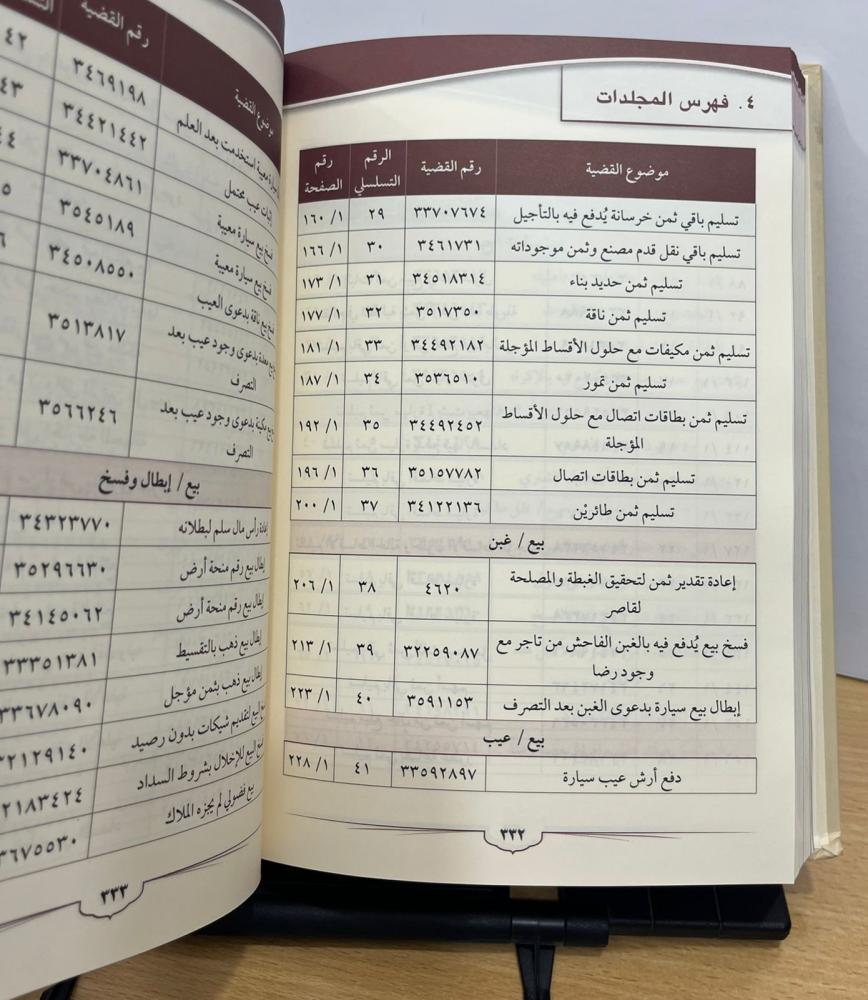 ٤. فهرس المجلدات
موضوع القضية رقم القضية الرقم التسلسلي رقم الصفحة
تسليم باقي ثمن خرسانة يُدفع فيه بالتأجيل ٣٣٧٠٧٦٧٤ ٢٩ ١/ ١٦٠
تسليم باقي نقل قدم مصنع وثمن موجوداته ٣٤٦١٧٣١ ٣٠ ١/ ١٦٦
تسليم ثمن حديد بناء ٣٤٥١٨٣١٤ ٣١ ١/ ١٧٣
تسليم ثمن ناقة ٣٥١٧٣٥٠ ٣٢ ١/ ١٧٧
تسليم ثمن مكيفات مع حلول الأقساط المؤجلة ٣٤٤٩٢١٨٢ ٣٣ ١/ ١٨١
تسليم ثمن تمور ٣٥٣٦٥١٠ ٣٤ ١/ ١٨٧
تسليم ثمن بطاقات اتصال مع حلول الأقساط
المؤجلة ٣٤٤٩٢٤٥٢ ٣٥ ١/ ١٩٢
تسليم ثمن بطاقات اتصال ٣٥١٥٧٧٨٢ ٣٦ ١/ ١٩٦
تسليم ثمن طائريْن ٣٤١٢٢١٣٦ ٣٧ ١/ ٢٠٠
بيع / غبن
إعادة تقدير ثمن لتحقيق الغبطة والمصلحة
لقاصر ٤٦٢٠ ٣٨ ١/ ٢٠٦
فسخ بيع يُدفع فيه بالغبن الفاحش من تاجر مع
وجود رضا ٣٢٢٥٩٠٨٧ ٣٩ ١/ ٢١٣
إبطال بيع سيارة بدعوى الغبن بعد التصرف ٣٥٩١١٥٣ ٤٠ ١/ ٢٢٣
بيع / عيب
دفع أرش عيب سيارة ٣٣٥٩٢٨٩٧ ٤١ ١/ ٢٢٨
٣٣٢
موضوع القضية رقم القضية
سيارة معيبة استخدمت بعد العلم ٣٤٦٩١٩٨ ٤٢
إثبات عيب محتمل ٣٤٤٢١٤٤٢ ٤٣
فسخ بيع سيارة معيبة ٣٣٧٠٤٨٦١
فسخ بيع سيارة معيبة ٣٥٤٥١٨٩
فسخ بيع ناقة بدعوى العيب ٣٤٥٠٨٥٥٠
بدعوى وجود عيب بعد
التصرف ٣٥١٣٨١٧
بدعوى وجود عيب بعد
التصرف ٣٥٦٦٢٤٦
بيع / إبطال وفسخ
إعادة رأس مال سلم لبطلانه ٣٤٣٢٣٧٧٠
إبطال بيع رقم منحة أرض ٣٥٢٩٦٦٣٠
إبطال بيع رقم منحة أرض ٣٤١٤٥٠٦٢
إبطال بيع ذهب بالتقسيط ٣٣٣٥١٣٨١
إبطال بيع ذهب بثمن مؤجل
البيع لتقديم شيكات بدون رصيد
البيع للإخلال بشروط السداد
بيع فضولي لم يجزه الملاك
٣٣٣